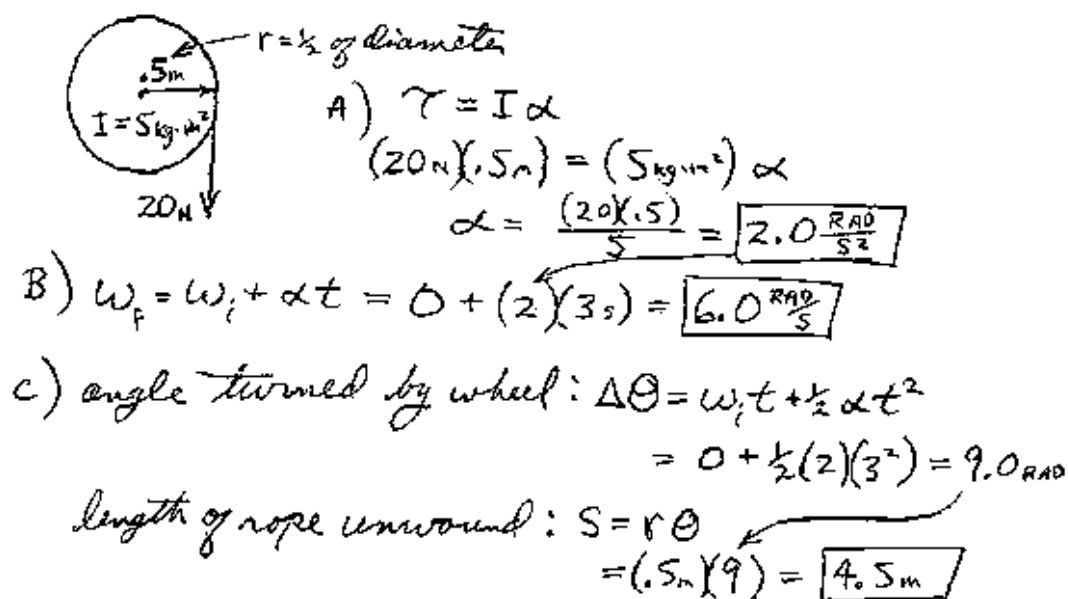 r = ½ of diameter
.5m
I = 5 kg·m²
20N
A) τ = I α
(20N)(.5m) = (5 kg·m²) α
α = (20)(.5) / 5 = 2.0 RAD/S²
B) ω_f = ω_i + αt = 0 + (2)(3s) = 6.0 RAD/S
C) angle turned by wheel : Δθ = ω_i t + ½ αt²
= 0 + ½(2)(3²) = 9.0 RAD
length of rope unwound : S = rθ
= (.5m)(9) = 4.5m